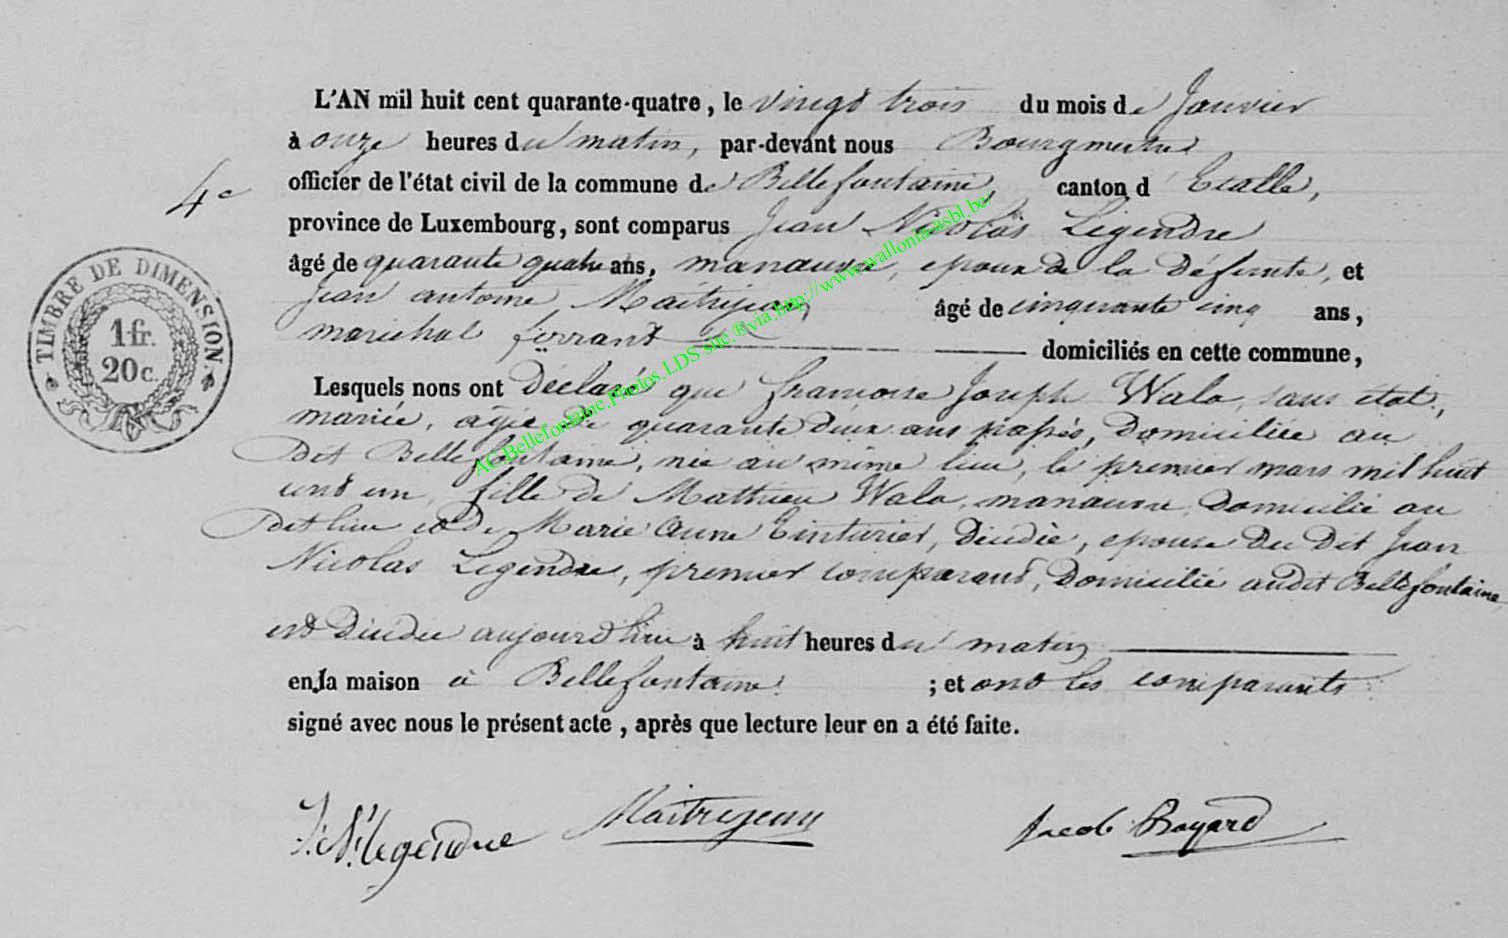 L'AN mil huit cent quarante-quatre, le vingt trois du mois de Janvier
à onze heures du matin, par-devant nous Bourgmestre
4e officier de l'état civil de la commune de Bellefontaine, canton d'Etalle,
province de Luxembourg, sont comparus Jean Nicolas Legendre
âgé de quarante quatre ans, manœuvre, epoux de la défunte, et
Jean antoine Maitrejean, âgé de cinquante cinq ans,
marechal ferrant domiciliés en cette commune,
TIMBRE DE DIMENSION.
1 fr.
20 c.
Lesquels nous ont déclaré que francoise Joseph Wala, sans état,
mariée, agée de quarante deux ans passés, domiciliée au
dit Bellefontaine, née au même lieu, le premier mars mil huit
cent un, fille de Mathieu Wala, manœuvre domicilié au
dit lieu et de Marie anne Tinturier, décédée, epouse du dit Jean
Nicolas Legendre, premier comparant, domicilié audit Bellefontaine
est décédée aujourd'hui à huit heures du matin
en la maison à Bellefontaine ; et ont les comparants
signé avec nous le présent acte, après que lecture leur en a été faite.
J. N. legendre Maitrejean Jacob Bayard
AC.Bellefontaine.Photos.LDS site.®via.http://www.wallonia.asbl.be/